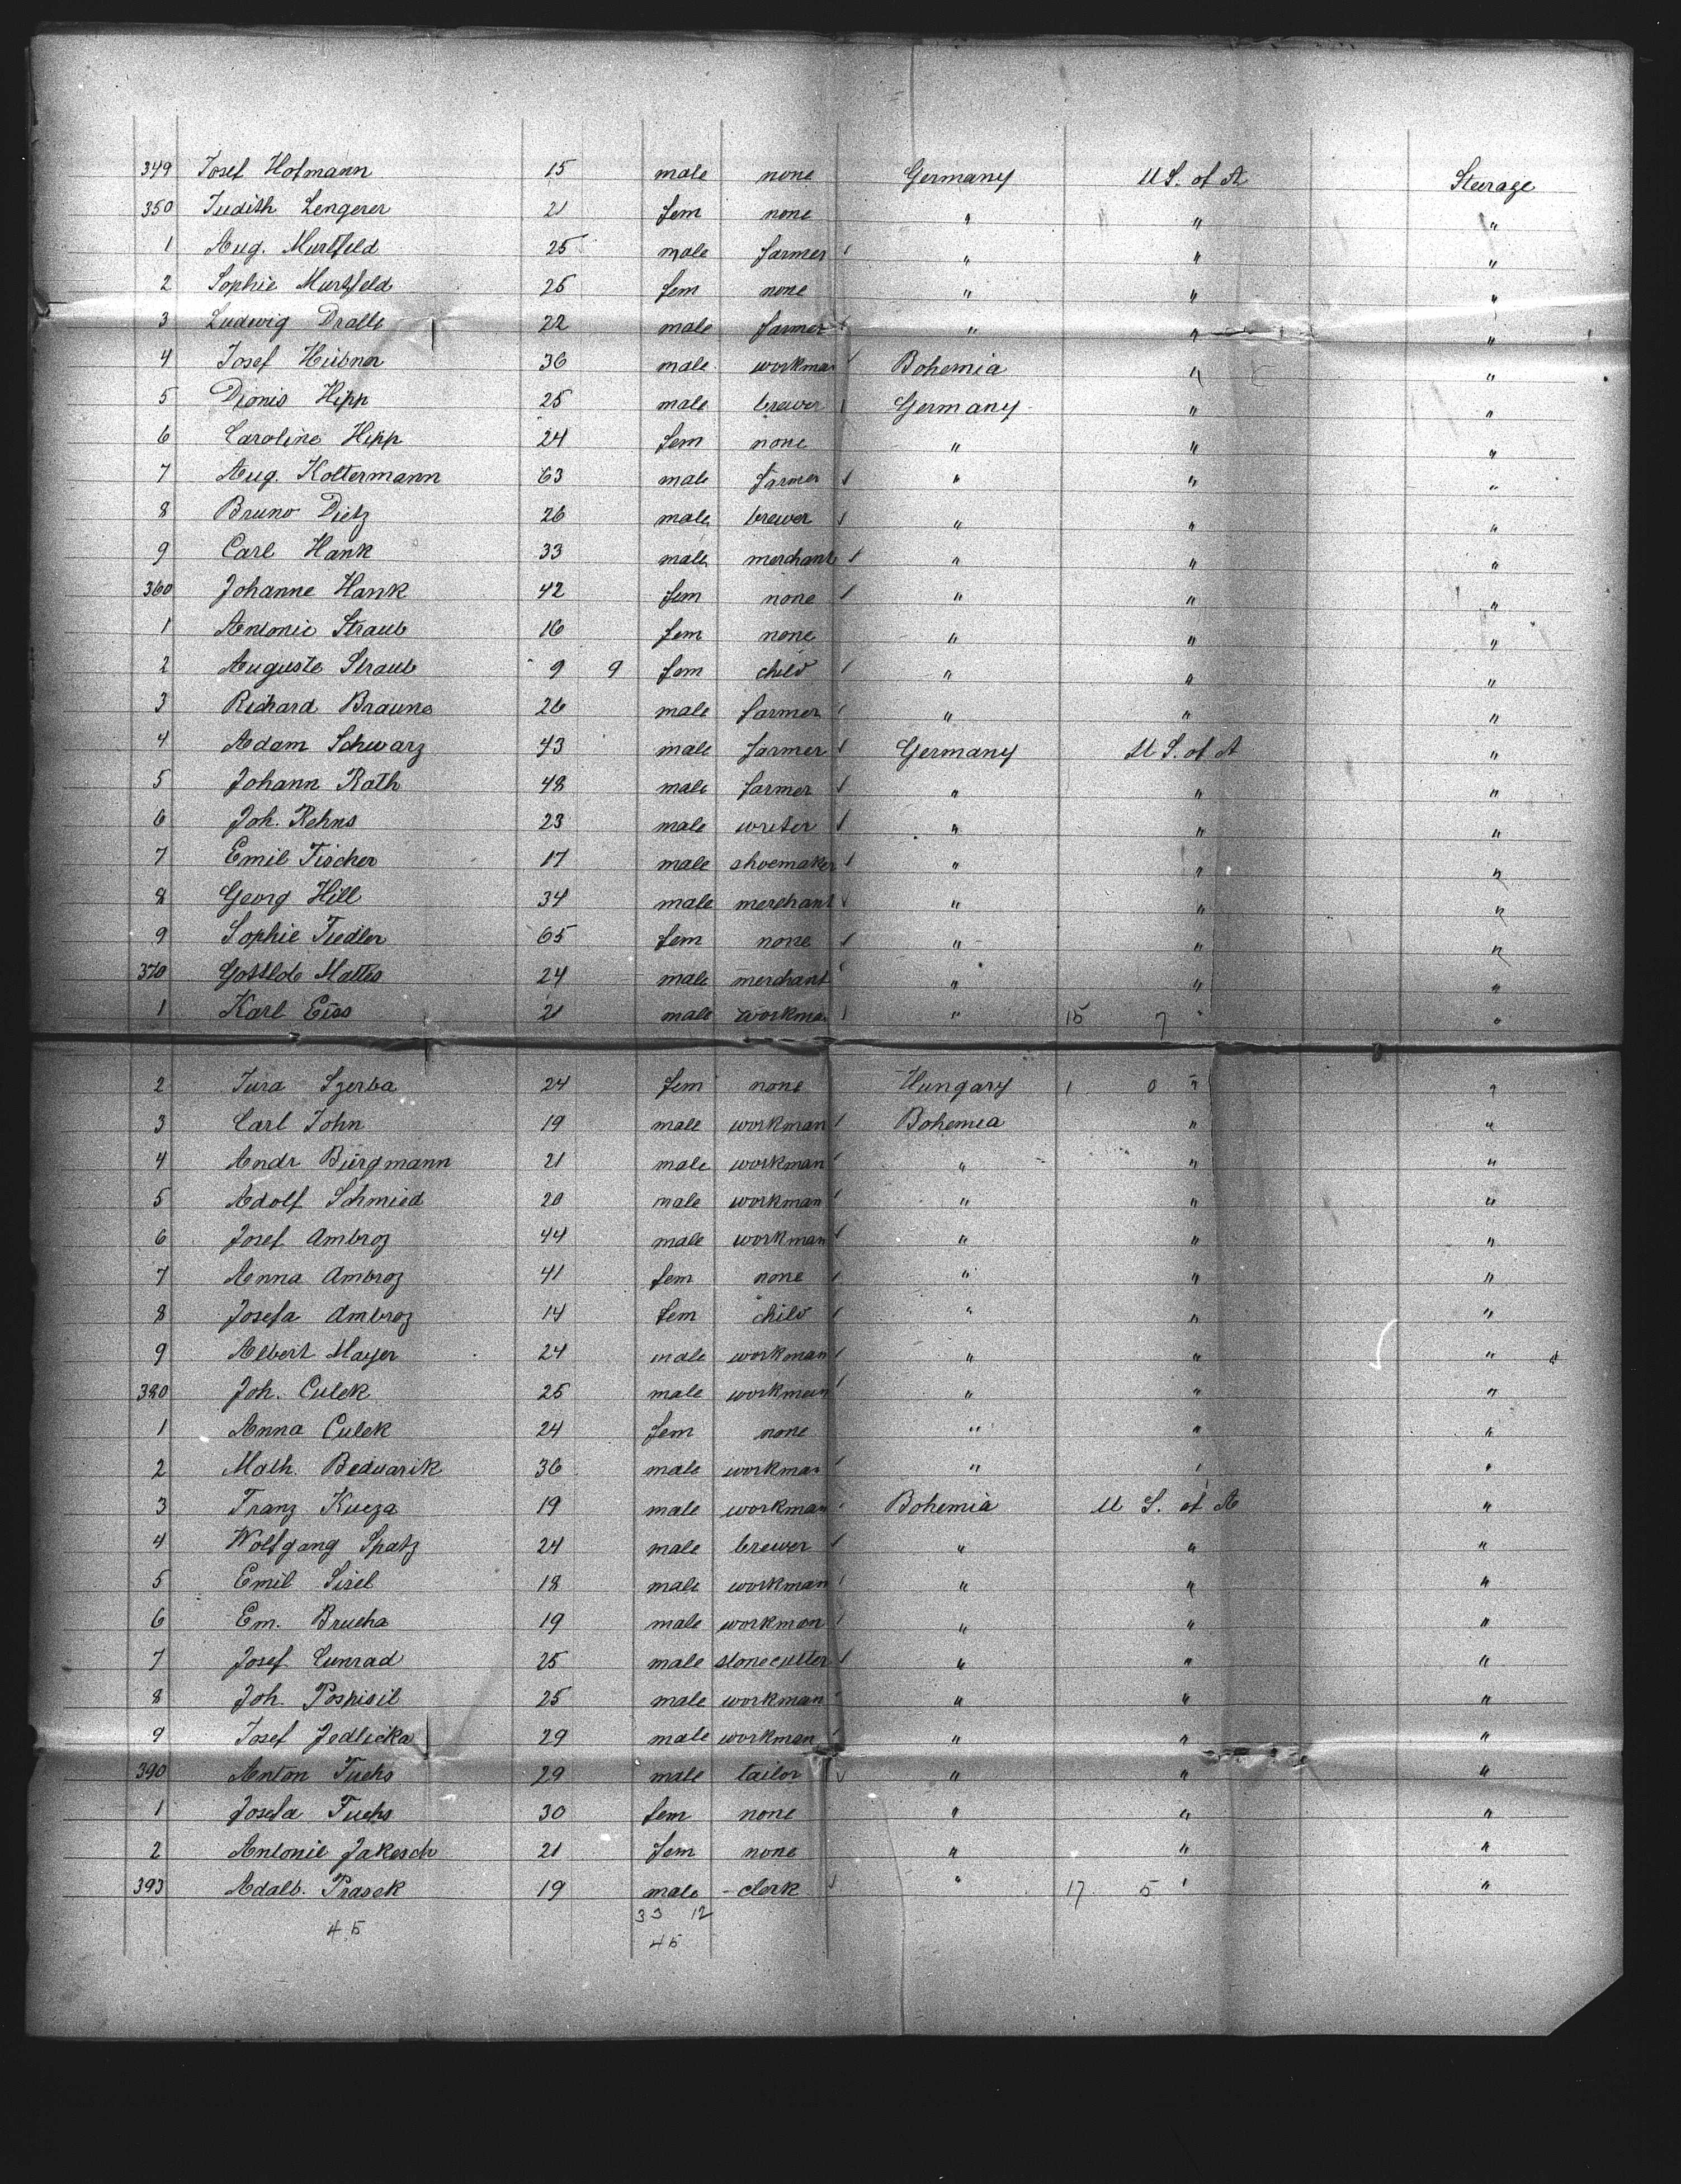 349 Josef Hofmann 15 male none Germany U S. of A Steerage
350 Judith Lengerer 21 fem none " " "
1 Aug. Murtfeld 25 male farmer " " "
2 Sophie Murtfeld 25 fem none " " "
3 Ludwig Dralle 22 male farmer " " "
4 Josef Hübner 36 male workman Bohemia " "
5 Dionis Hipp 25 male brewer Germany " "
6 Caroline Hipp 24 fem none " " "
7 Aug. Koltermann 63 male farmer " " "
8 Bruno Dietz 26 male brewer " " "
9 Carl Hank 33 male merchant " " "
360 Johanne Hank 42 fem none " " "
1 Antonie Straub 16 fem none " " "
2 Auguste Straub 9 9 fem child " " "
3 Richard Braune 26 male farmer " " "
4 Adam Schwarz 43 male farmer Germany U S. of A "
5 Johann Roth 48 male farmer " " "
6 Joh. Rehns 23 male writer " " "
7 Emil Fischer 17 male shoemaker " " "
8 Georg Hill 34 male merchant " " "
9 Sophie Fiedler 65 fem none " " "
370 Mattes 24 male merchant " " "
1 Karl Eiss 21 male workman " 15 7 " "
2 Jura Szerba 24 fem none Hungary 1 0 " "
3 Carl John 19 male workman Bohemia " "
4 Andr Bürgmann 21 male workman " " "
5 Adolf Schmied 20 male workman " " "
6 Josef Ambroz 44 male workman " " "
7 Anna Ambroz 41 fem none " " "
8 Josefa Ambroz 14 fem child " " "
9 Albert Mayer 24 male workman " " "
380 Joh. Culek 25 male workman " " "
1 Anna Culek 24 fem none " " "
2 Math. Bedvarik 36 male workman " " "
3 Franz Kucza 19 male workman Bohemia U S. of A "
4 Wolfgang Spatz 24 male brewer " " "
5 Emil Sisel 18 male workman " " "
6 Em. Brucha 19 male workman " " "
7 Josef Cunrad 25 male stonecutter " " "
8 Joh. Pospisil 25 male workman " " "
9 Josef Jedlicka 29 male workman " " "
390 Anton Fuchs 29 male tailor " " "
1 Josefa Fuchs 30 fem none " " "
2 Antonie Jakesch 21 fem none " " "
393 Adalb. Prasek 19 male clerk " 17 5 " "
45 33 12
45